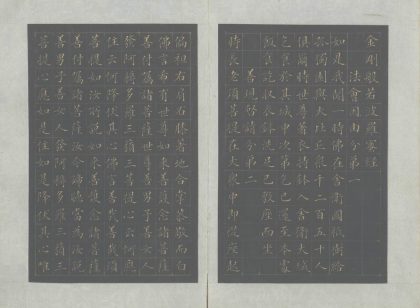 金剛般若波羅蜜經
法會因由分第一
如是我聞一時佛在舍衛國祇樹給
孤獨園與大比丘眾千二百五十人
俱爾時世尊食時著衣持鉢入舍衛大城
乞食於其城中次第乞已還至本處
飯食訖收衣鉢洗足已敷座而坐
善現啟請分第二
時長老須菩提在大眾中即從座起
偏袒右肩右膝著地合掌恭敬而白
佛言希有世尊如來善護念諸菩薩
善付囑諸菩薩世尊善男子善女人
發阿耨多羅三藐三菩提心云何應
住云何降伏其心佛言善哉善哉須
菩提如汝所說如來善護念諸菩薩
善付囑諸菩薩汝今諦聽當為汝說
善男子善女人發阿耨多羅三藐三
菩提心應如是住如是降伏其心唯